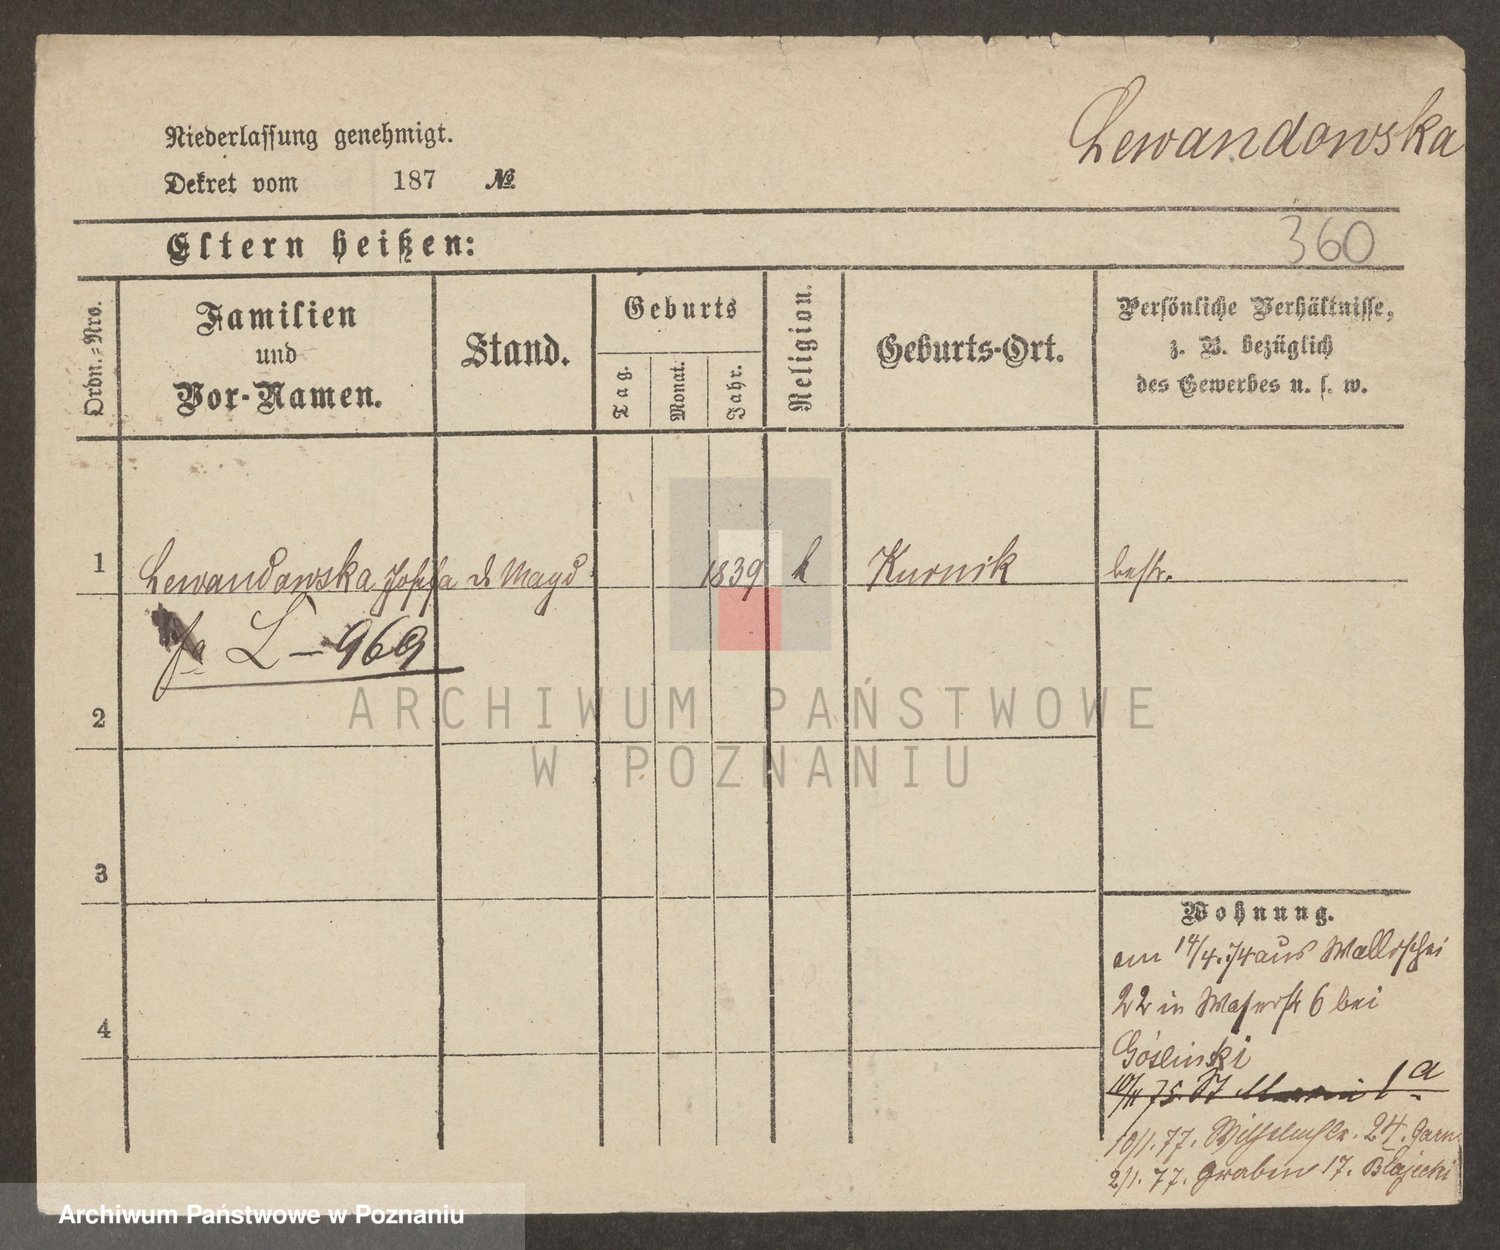 Lewandowska
Niederlassung genehmigt.
Dekret vom 187 №
360
Eltern heißen:
Ordn.-Nro.
Familien
und
Vor-Namen.
Stand.
Geburts
Tag.
Monat.
Jahr.
Religion.
Geburts-Ort.
Persönliche Verhältnisse,
z. B. bezüglich
des Gewerbes u. s. w.
1 Lewandowska Josefa d Magd 1839 k Kurnik bestr.
L - 969
2
3
4
Wohnung.
am 14/4.74 aus Wallischei
22 in Wasserstr 6 bei
Góslinski
10/11 75. St Martin 1 a
10/1.77. Wilhelmstr. 24.
2/1.77. Graben 17. Błajecki
ARCHIWUM PAŃSTWOWE
W POZNANIU
Archiwum Państwowe w Poznaniu